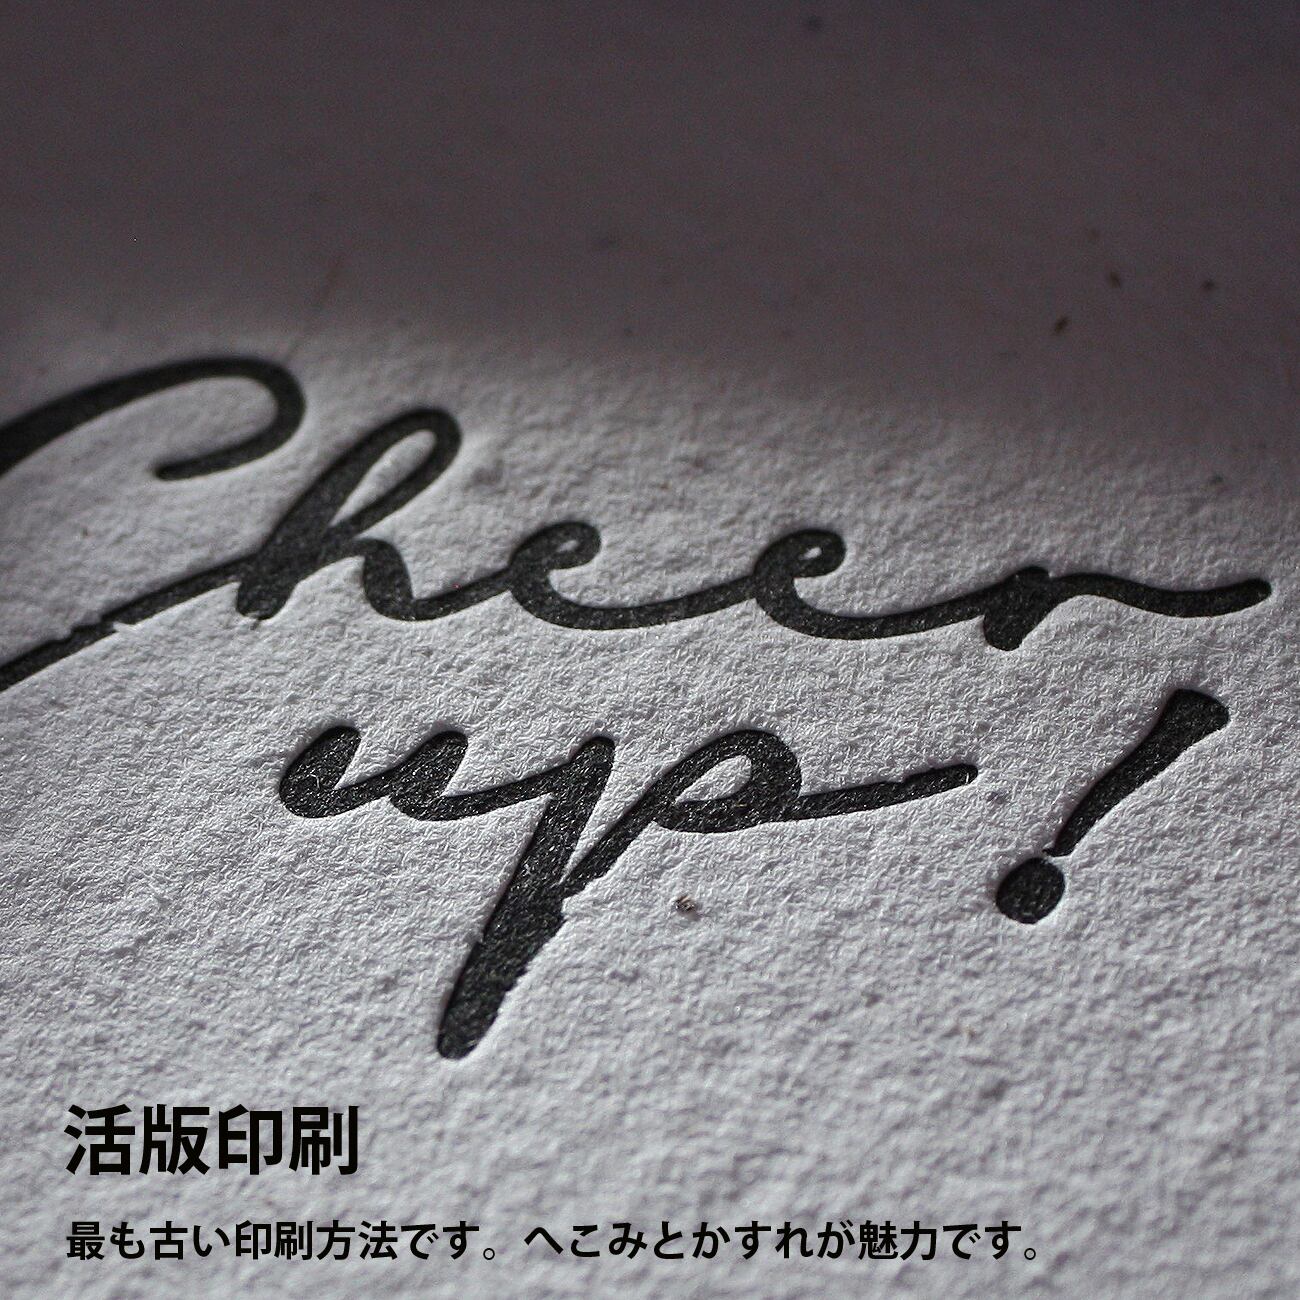 Cheer
up!
活版印刷
最も古い印刷方法です。へこみとかすれが魅力です。